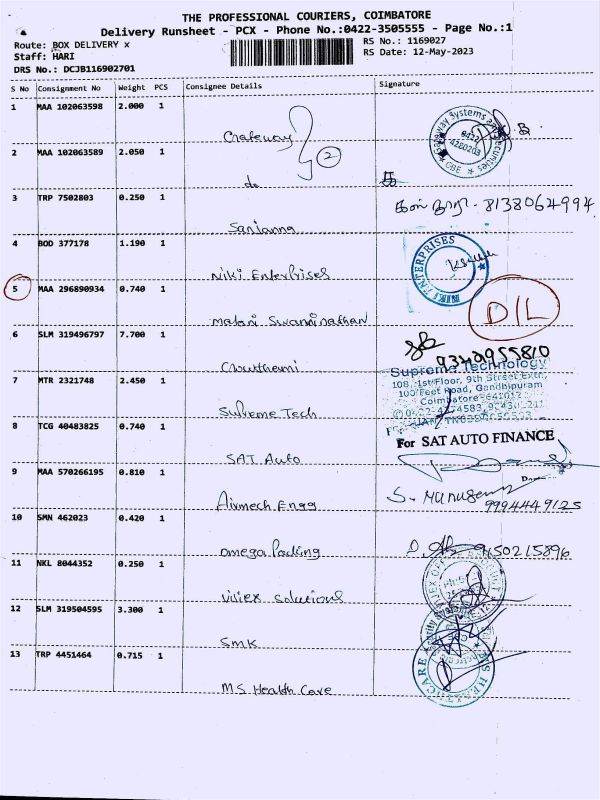 THE PROFESSIONAL COURIERS, COIMBATORE
Delivery Runsheet - PCX - Phone No.:0422-3505555 - Page No.:1
Route: BOX DELIVERY x
Staff: HARI
DRS No.: DCJB116902701
RS No.: 1169027
RS Date: 12-May-2023
S No Consignment No Weight PCS Consignee Details Signature
1 MAA 102063598 2.000 1 Gateway
Gateway Systems and Securities 0422 4280203 CBE
2 MAA 102063589 2.050 1 do 2
3 TRP 7502803 0.250 1 Sanjanna 8138064994
4 BOD 377178 1.190 1 Niki Enterprises
NIKI ENTERPRISES
5 MAA 296890934 0.740 1 Malani Swaminathan D/L
6 SLM 319496797 7.700 1 Chowthami 9342955810
7 MTR 2321748 2.450 1 Supreme Tech
Supreme Technology
108, 1st Floor, 9th Street Extn,
100 Feet Road, Gandhipuram
Coimbatore-641012
8 TCG 40483825 0.740 1 SAT Auto
For SAT AUTO FINANCE
9 MAA 570266195 0.810 1 Airmech Engg
S. Murugesan 9994449125
10 SMN 462023 0.420 1 Omega Packing 9150215896
11 NKL 8044352 0.250 1 Viviex Solutions
12 SLM 319504595 3.300 1 SMK
13 TRP 4451464 0.715 1 MS Health Care
MS HEALTHCARE